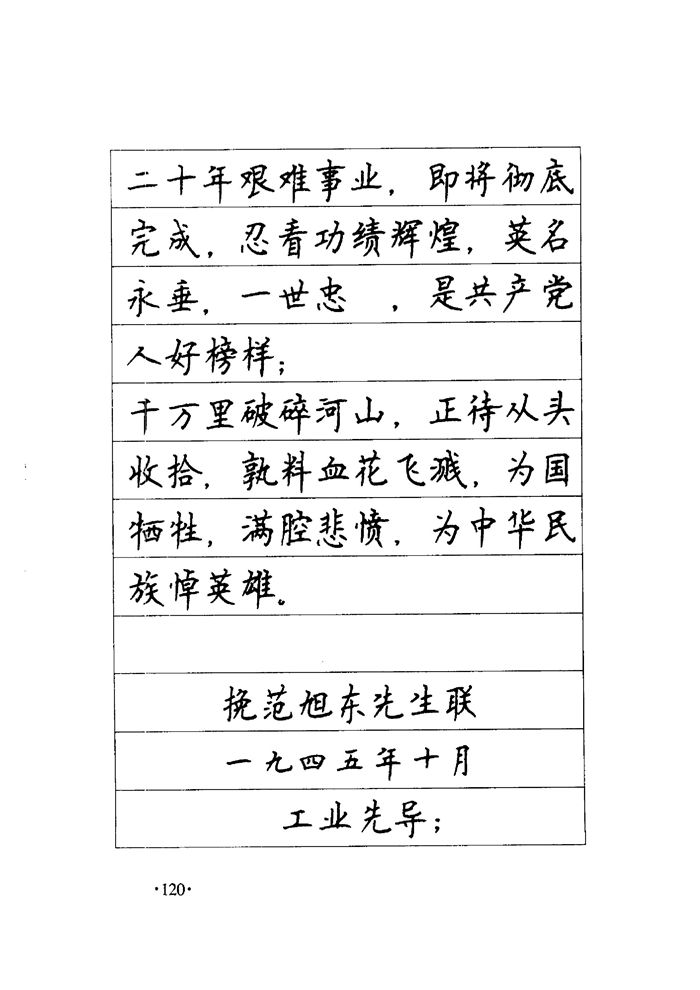 二十年艰难事业，即将彻底
完成，忍看功绩辉煌，英名
永垂，一世忠　，是共产党
人好榜样；
千万里破碎河山，正待从头
收拾，孰料血花飞溅，为国
牺牲，满腔悲愤，为中华民
族悼英雄。
挽范旭东先生联
一九四五年十月
工业先导；
·120·